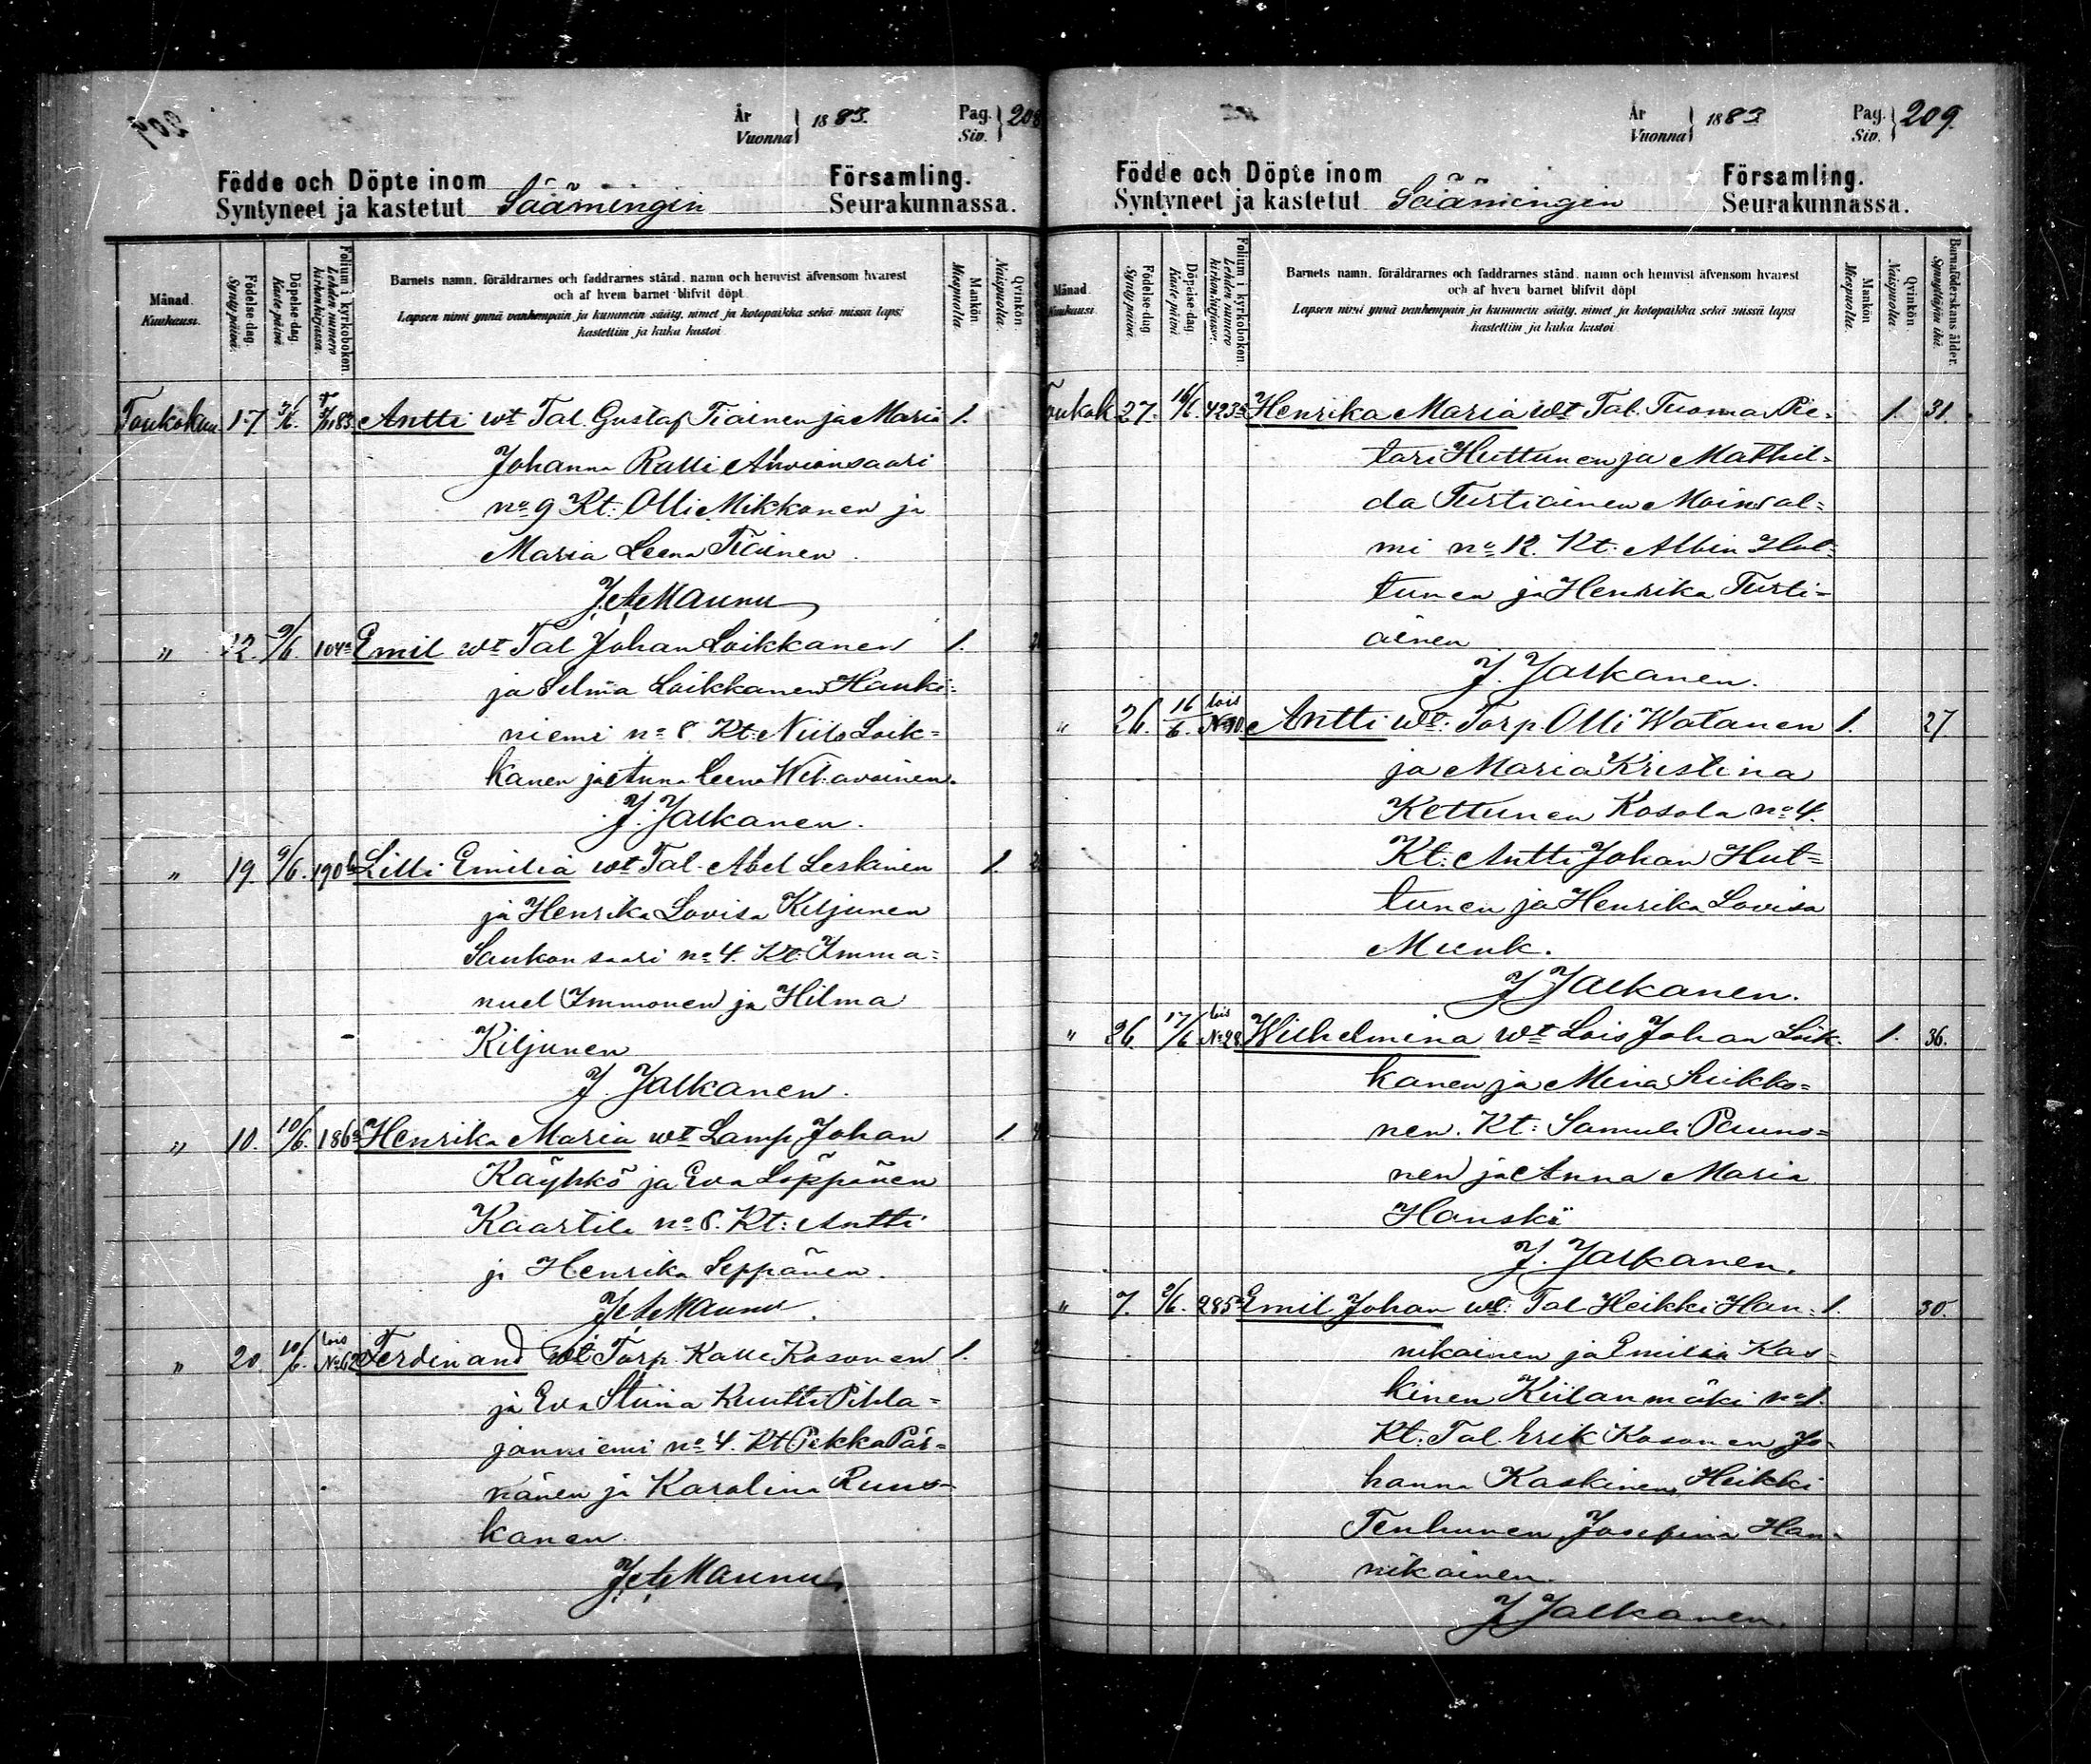 År
Vuonna
1883.
Pag.
Siv.
208
Födde och Döpte inom
Syntyneet ja kastetut
Säämingin
Församling.
Seurakunnassa.
Månad.
Kuukausi.
Födelse-dag.
Synty päivä.
Döpelse-dag.
Kaste päivä
Folium i kyrkobokon.
Lehden numero
kirkon kirjassa.
Barnets namn, föräldrarnes och faddrarnes stånd, namn och hemvist äfvensom hvarest
och af hvem barnet blifvit döpt
Lapsen nimi ynnä vanhempain ja kummein sääty, nimet ja kotopaikka sekä missä lapsi
kastettiin ja kuka kastoi
Mankön
Miespuolta.
Qvinkön
Naispuolta.
Toukokuu 17. 3/6. Antti wt Tal. Gustaf Tiainen ja Maria 1.
Johanna Ralli Ahvionsaari
no 9 Kt: Olli Mikkonen ja
Maria Leena Tiainen
J. A. Maunu
" 22. 9/6. 104 Emil wt Tal Johan Loikkanen 1.
ja Selma Loikkanen Hauki=
niemi no 8 Kt: Niilo Loik=
kanen ja Anna Leena
J. Jalkanen.
" 19. 9/6. 190 b Lilli Emilia wt Tal. Abel Leskinen 1.
ja Henrika Lovisa Kiljunen
Saukonsaari no 4. Kt: Imma=
nuel Immonen ja Hilma
Kiljunen
J. Jalkanen.
" 10. 10/6. 186 Henrika Maria wt Lamp. Johan 1.
Käyhkö ja Eva Seppänen
Kaartila no 8. Kt: Antti
ja Henrika Seppänen.
J. A. Maunu.
" 20. 10/6. lois No 62 Ferdinand wt Torp. Kalle Kosonen 1.
ja Eva Stiina Kuutti Pihla=
janniemi no 4. Kt Pekka Pär=
nänen ja Karolina Ruus=
kanen
J. A. Maunu
År
Vuonna
1883
Pag.
Siv.
209.
Födde och Döpte inom
Syntyneet ja kastetut
Säämingin
Församling.
Seurakunnassa.
Månad
Kuukausi
Födelse-dag
Synty päivä.
Döpelse-dag.
Kaste päivä
Folium i kyrkobokon.
Lehden numero
kirkon kirjassa.
Barnets namn, föräldrarnes och faddrarnes stånd, namn och hemvist äfvensom hvarest
och af hvem barnet blifvit döpt
Lapsen nimi ynnä vanhempain ja kummein sääty, nimet ja kotopaikka sekä missä lapsi
kastettiin ja kuka kastoi
Mankön
Miespuolta.
Qvinkön
Naispuolta.
Barnaföderskans ålder.
Synnyttäjän ikä.
Toukok 27. 16/6. 423 Henrika Maria wt Tal. Tuomas Pie= 1. 31.
tari Huttunen ja Mathil=
da Turtiainen Moinsal=
mi no 12. Kt: Albin Hut=
tunen ja Henrika Turti=
ainen
J. Jalkanen.
" 26. 16/6. lois No 10. Antti wt: Torp. Olli Watanen 1. 27
ja Maria Kristina
Kettunen Kosola no 4.
Kt: Antti Johan Hut=
tunen ja Henrika Lovisa
Munk.
J Jalkanen.
" 26. 17/6 lois No 28. Wilhelmina wt Lois Johan Loik= 1. 36.
kanen ja Mina Liikko=
nen. Kt: Samuli Pauno=
nen ja Anna Maria
Hanski
J. Jalkanen.
" 7. 9/6. 285 Emil Johan wt: Tal Heikki Han= 1. 30.
nikainen ja Emilia Kas=
kinen Kiilanmäki no 1.
Kt: Tal. Erik Kosonen Jo=
hanna Kaskinen, Heikki
Tenhunen Josefina Han=
nikainen.
J Jalkanen.